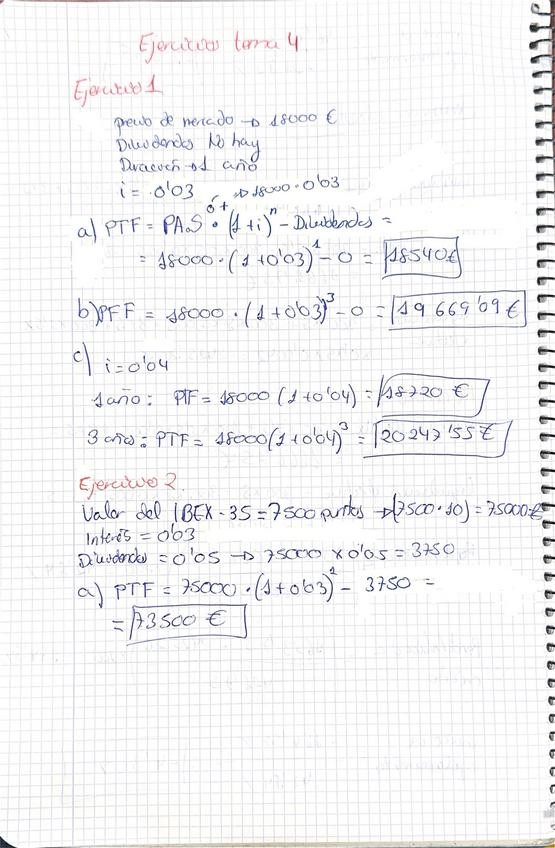 Ejercicios tema 4.
Ejercicio 1
precio de mercado → 18000 €
Dividendos No hay
Duración → 1 año
i = 0'03 → 18000 · 0'03
a) PTF = PA.S · (1+i)^n - Dividendos =
= 18000 · (1+0'03)^1 - 0 = 18540€
b) PFF = 18000 · (1+0'03)^3 - 0 = 19 669'09 €
c) i = 0'04
1 año: PTF = 18000 (1+0'04) = 18720 €
3 años: PTF = 18000(1+0'04)^3 = 20247'55 €
Ejercicio 2.
Valor del IBEX-35 = 7500 puntos → (7500 · 10) = 75000€
Interés = 0'03
Dividendos = 0'05 → 75000 x 0'05 = 3750
a) PTF = 75000 · (1+0'03)^1 - 3750 =
= 73500 €